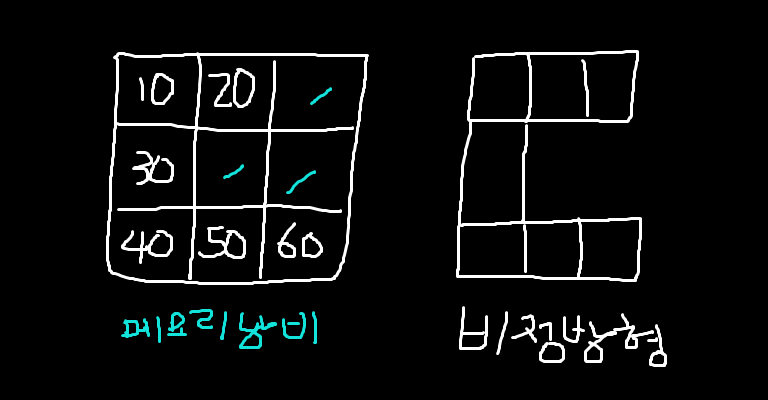 10 20
30
40 50 60
메모리낭비
비정방형